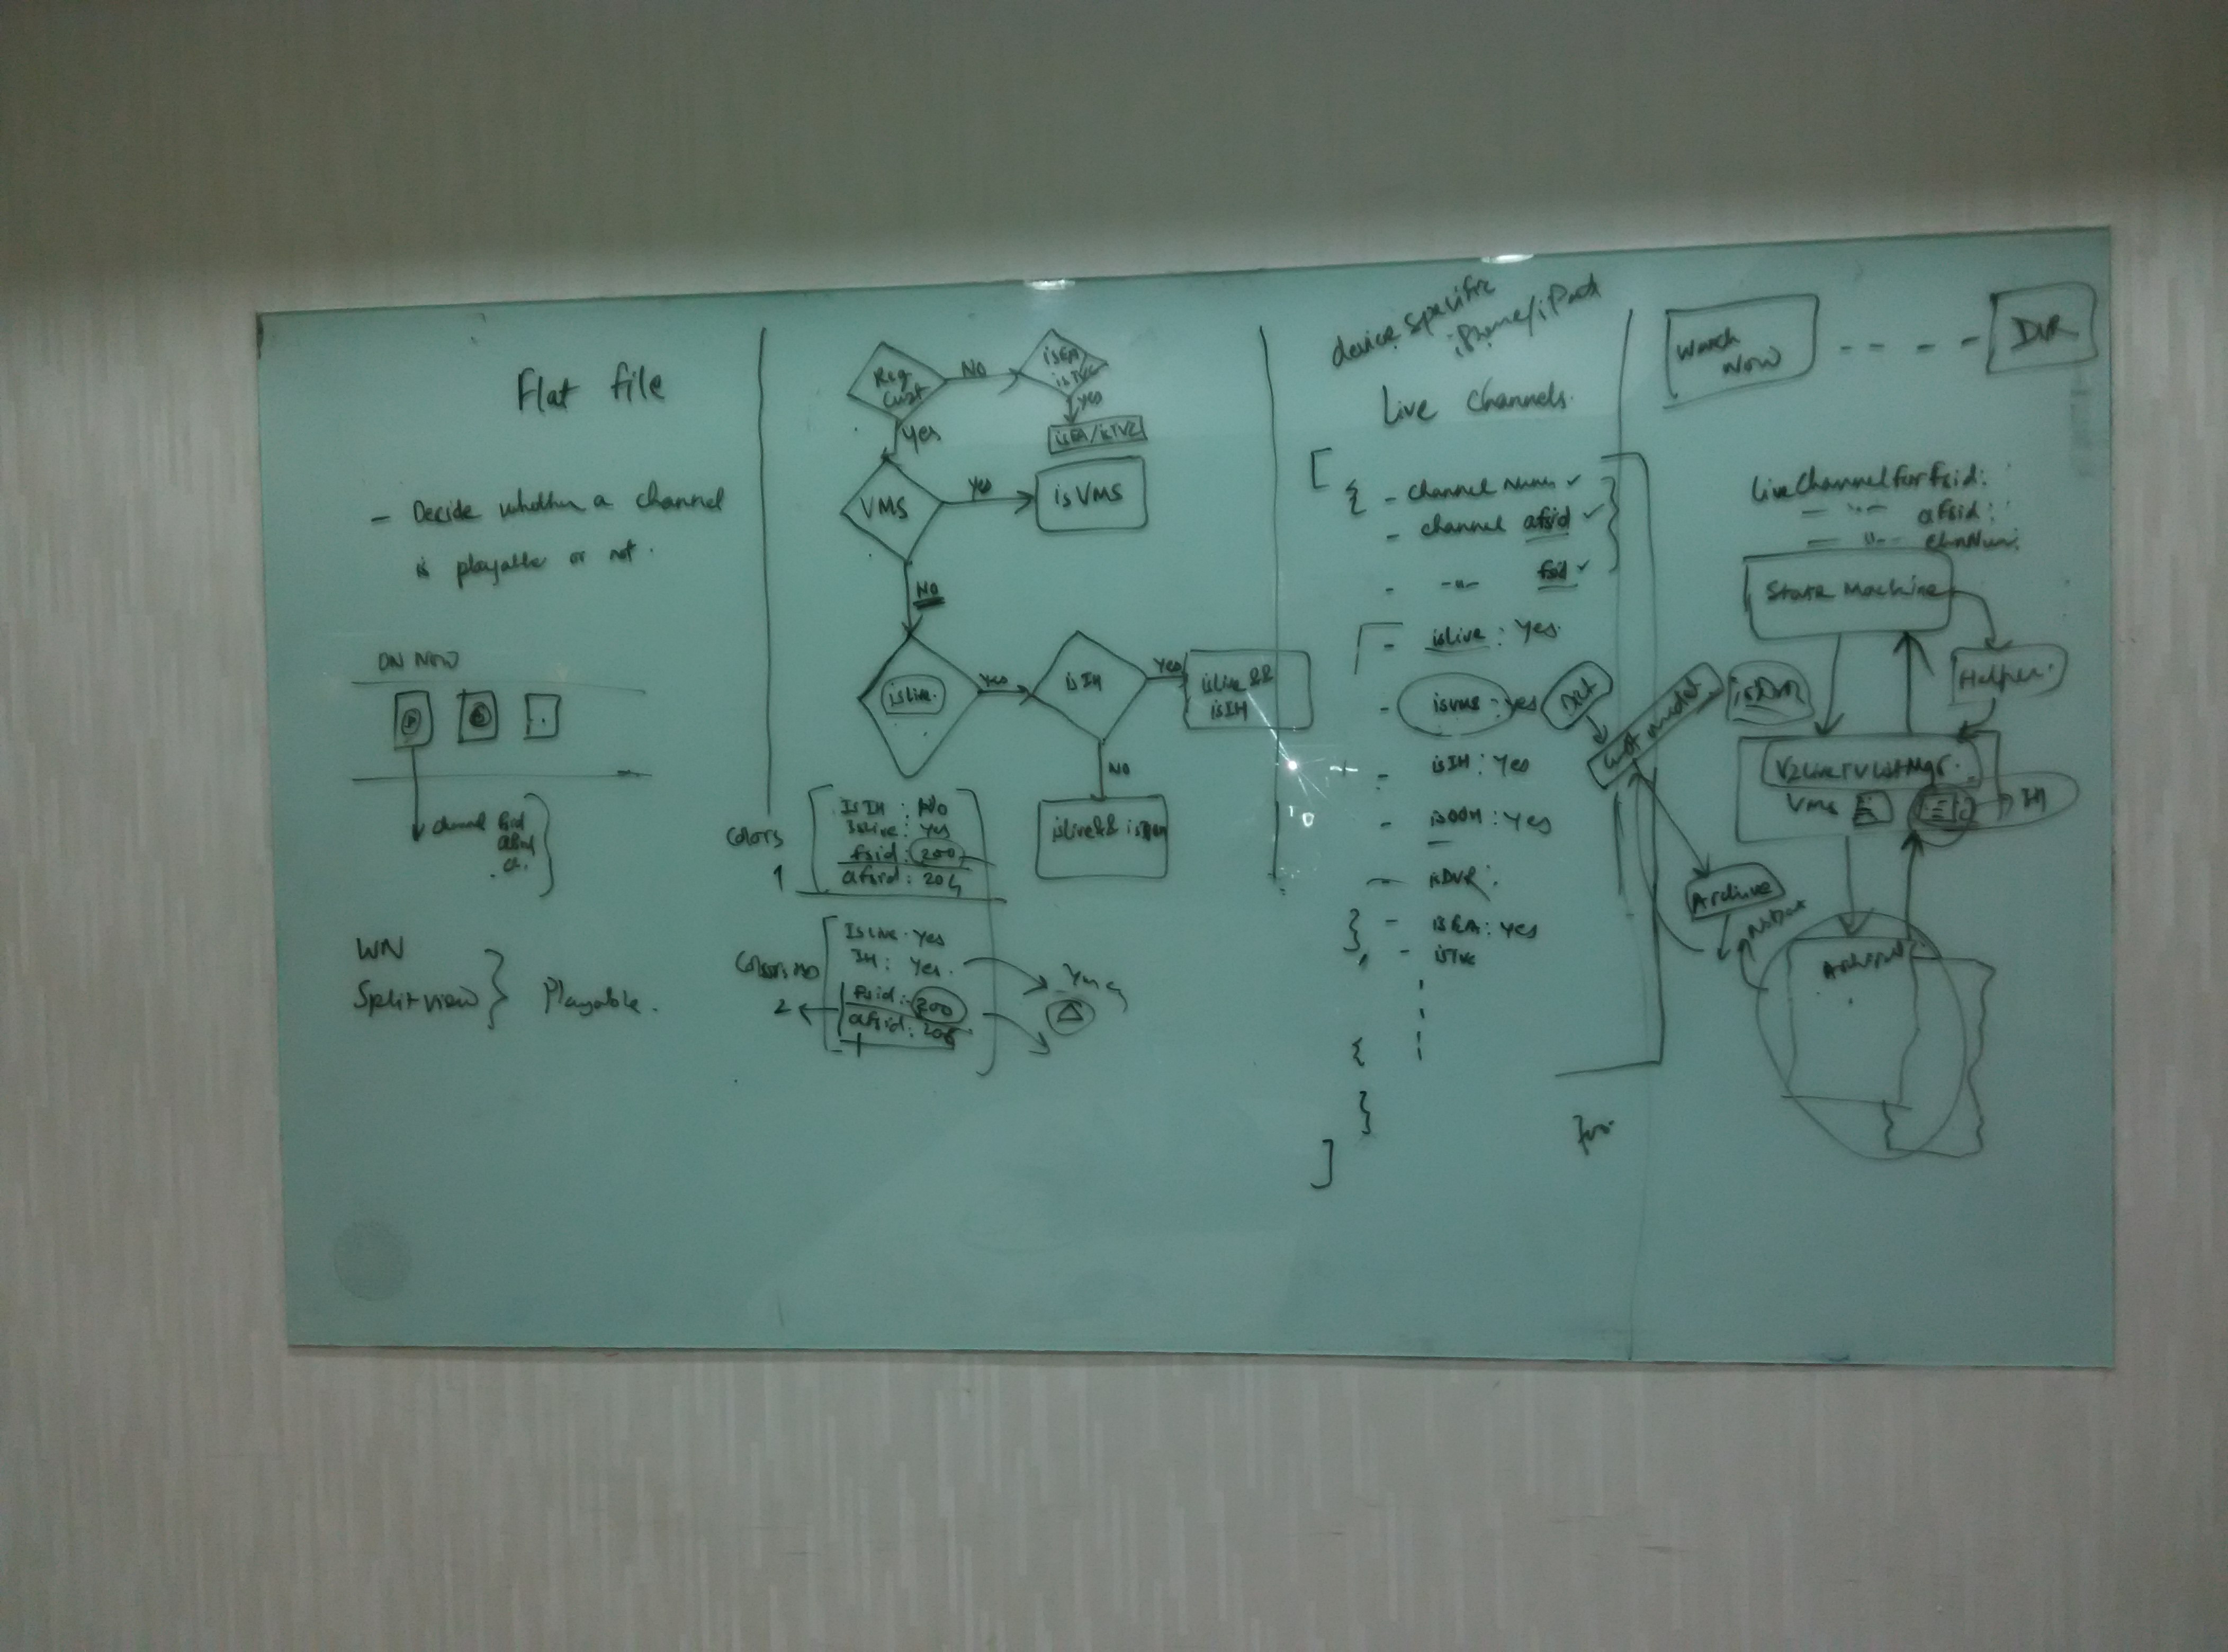 Flat file
- Decide whether a channel
is playable or not.
ON NOW
channel fsid
afsid
WN
Splitview } Playable.
Reg
Cust
NO
isEA
yes
yes
VMS
yes
isVMS
NO
isLive
yes
isIH
yes
isLive &&
isIH
NO
isLive &&
Colors
1
IsIH : No
IsLive : yes
fsid : 200
afsid : 204
2
IsLive . yes
IH : yes.
fsid : 200
afsid : 208
device specific
iPhone/iPad
Live Channels.
[
{ - channel Num ✓
- channel afsid ✓
- -"- fsid ✓
- isLive : yes.
- isVMS : yes
- isIH : yes
- isOOH : yes
- isDVR :
}, - isEA : yes
- isTVE
{
}
]
Watch
Now
- - - -
DVR
LiveChannelForFsid:
-"- afsid:
-"- chnNum:
State Machine
Helper.
isDVR
V2LiveTVListMgr.
VMS
IH
Archive